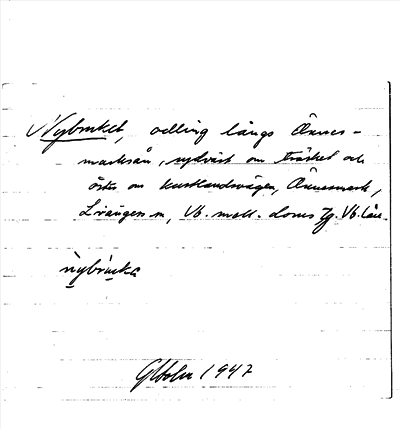 Nybruket, odling längs Ånäs-
marksån, sydväst om träsket och
öster om kustlandsvägen, Ånäsmark,
Lövångers sn, Vb. mell. doms tg. Vb. län.
nybruka
1947